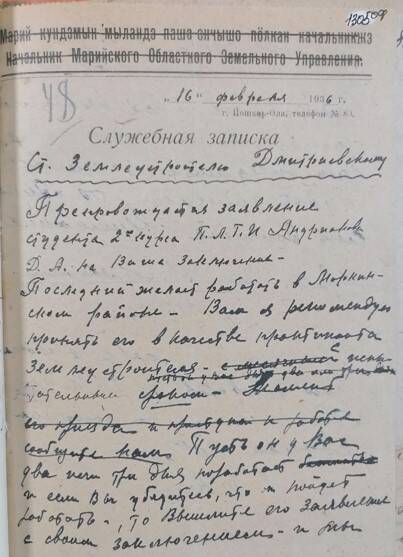 130509
Марий кундэмын мыланда паша ончышо пӧлкан начальникшэ
Начальник Марийского Областного Земельного Управления.
48
„16“ февраля 1936 г.
г. Йошкар-Ола, телефон №
Служебная записка
Ст. Землеустроителю Дмитриевскому
Препровождается заявление
студента 2го курса П.Л.Т.И Андрианова
Д. А. на Ваше заключение -
Последний желает работать в Моркин-
ском районе - Вам я рекомендую
принять его в качестве практиканта
Землеустроителя - с месячным испы-
тательным сроком -
его приезда и приступа к работе
сообщите нам Пусть он у Вас
два или три дня поработает
и если Вы убедитесь, что он пойдет
работать -, то Вышлите его заявление
с своим заключением - и мы